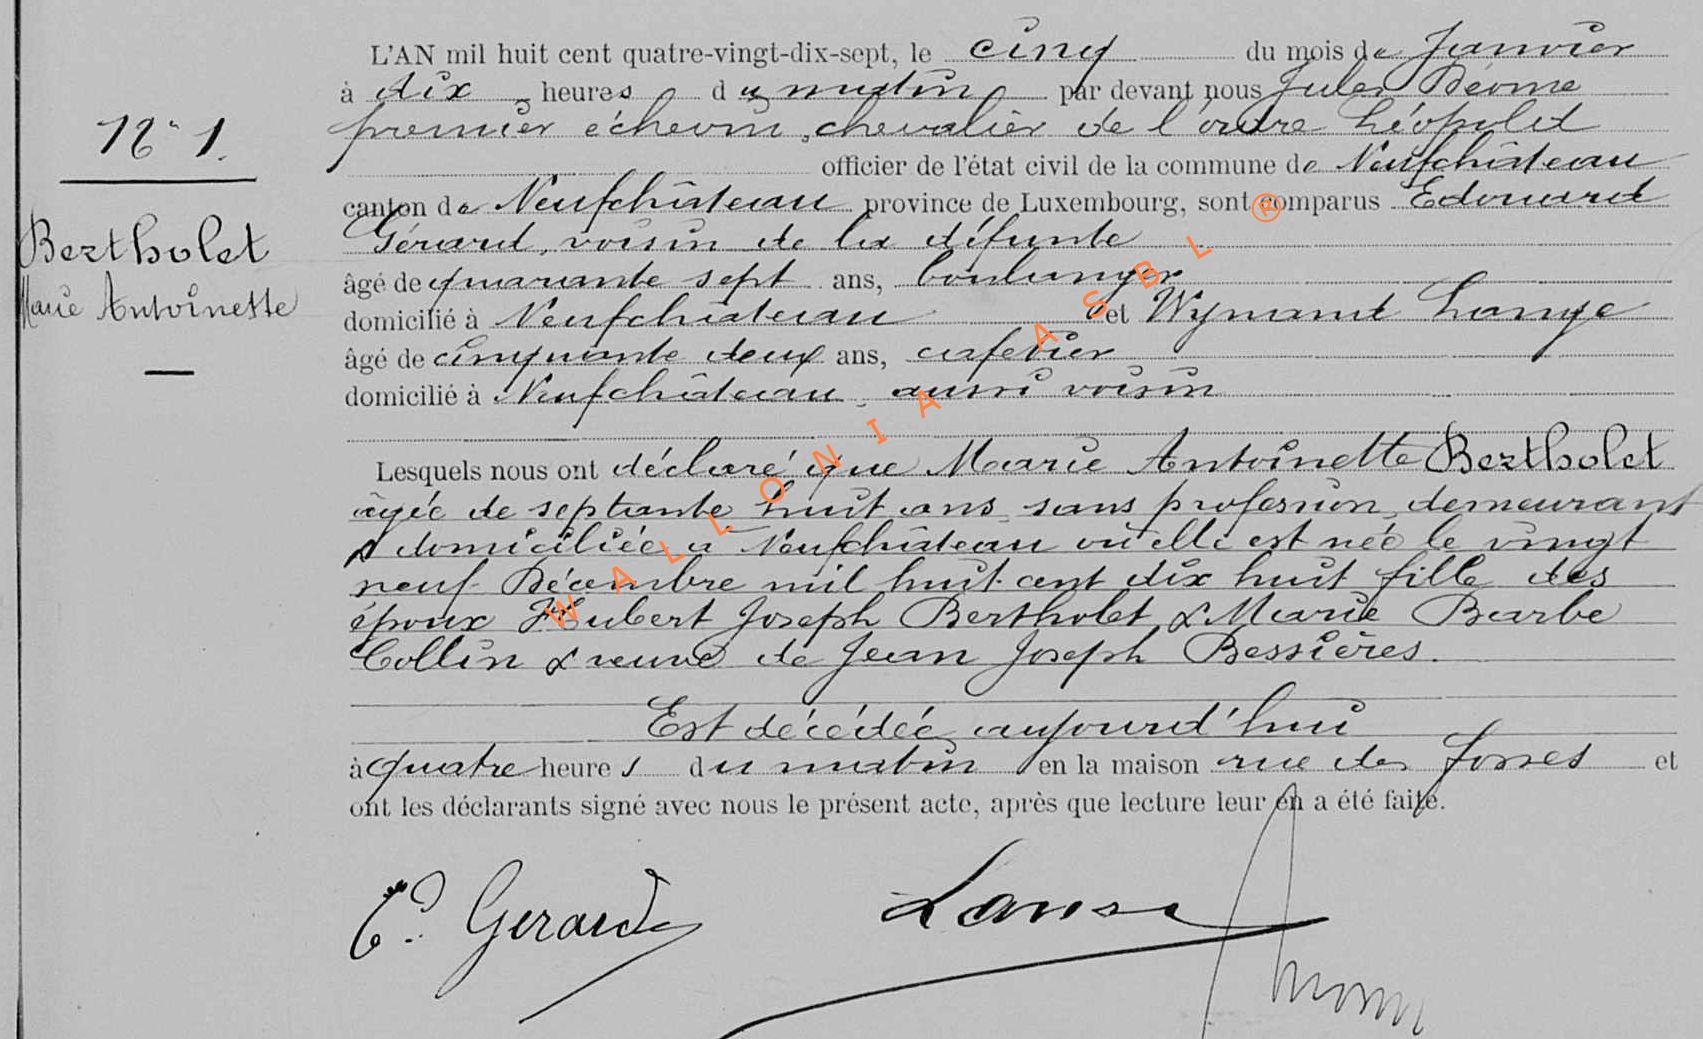 L'AN mil huit cent quatre-vingt-dix-sept, le cinq du mois de Janvier
à dix heures du matin par devant nous Jules Déome
premier échevin, chevalier de l'ordre Léopold
N° 1.
officier de l'état civil de la commune de Neufchâteau
canton de Neufchâteau province de Luxembourg, sont comparus Edouard
Gérard, voisin de la défunte
Bertholet
Marie Antoinette
âgé de quarante sept ans, boulanger
domicilié à Neufchâteau et Wynand Lange
âgé de cinquante deux ans, cafetier
domicilié à Neufchâteau, aussi voisin
Lesquels nous ont déclaré que Marie Antoinette Bertholet
âgée de septante huit ans, sans profession, demeurant
& domiciliée à Neufchâteau où elle est née le vingt
neuf Décembre mil huit cent dix huit fille des
époux Hubert Joseph Bertholet & Marie Barbe
Collin & veuve de Jean Joseph Bessières.
Est décédée aujourd'hui
à quatre heures du matin en la maison rue des fosses et
ont les déclarants signé avec nous le présent acte, après que lecture leur en a été faite.
Ed. Gerard
WALLONIA ASBL ®